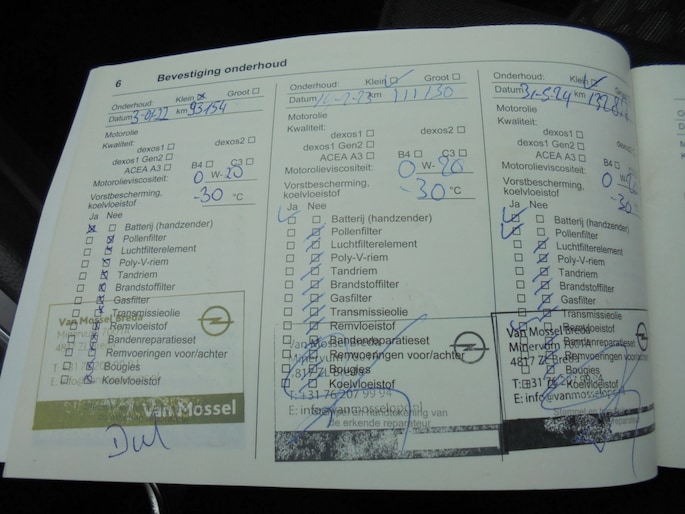 6 Bevestiging onderhoud
Onderhoud: Klein Groot
Datum km 93154
Motorolie
Kwaliteit:
dexos1 dexos2
dexos1 Gen2
ACEA A3 B4 C3
Motorolieviscositeit: 0 W-20
Vorstbescherming,
koelvloeistof -30 °C
Ja Nee
Batterij (handzender)
Pollenfilter
Luchtfilterelement
Poly-V-riem
Tandriem
Brandstoffilter
Gasfilter
Transmissieolie
Remvloeistof
Bandenreparatieset
Remvoeringen voor/achter
Bougies
Koelvloeistof
Van Mossel Breda
4817 ZL Breda
Van Mossel
Onderhoud: Klein Groot
Datum km 111130
Motorolie
Kwaliteit:
dexos1 dexos2
dexos1 Gen2
ACEA A3 B4 C3
Motorolieviscositeit: 0 W-20
Vorstbescherming,
koelvloeistof -30 °C
Ja Nee
Batterij (handzender)
Pollenfilter
Luchtfilterelement
Poly-V-riem
Tandriem
Brandstoffilter
Gasfilter
Transmissieolie
Remvloeistof
Bandenreparatieset
Remvoeringen voor/achter
Bougies
Koelvloeistof
T: +31 76 207 99 94
E: info@vanmosselopel.nl
Stempel en handtekening van
de erkende reparateur
Onderhoud: Klein Groot
Datum 31-5-24 km
Motorolie
Kwaliteit:
dexos1 dexos2
dexos1 Gen2
ACEA A3 B4 C3
Motorolieviscositeit: 0 W-
Vorstbescherming,
koelvloeistof -30 °C
Ja Nee
Batterij (handzender)
Pollenfilter
Luchtfilterelement
Poly-V-riem
Tandriem
Brandstoffilter
Gasfilter
Transmissieolie
Remvloeistof
Van Mossel Breda
Bandenreparatieset
Minervum
Remvoeringen voor/achter
4817 ZL Breda
Bougies
Koelvloeistof
T: +31 76 207 99 94
E: info@vanmosselopel
Stempel en
reparateur